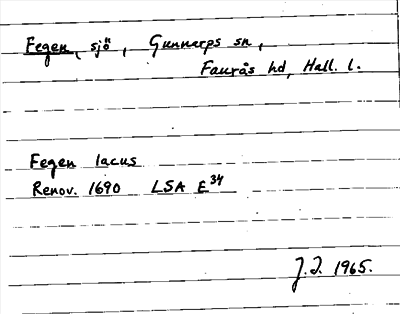 Fegen, sjö, Gunnarps sn,
Faurås hd, Hall. l.
Fegen lacus
Renov. 1690 LSA E34
J.I. 1965.